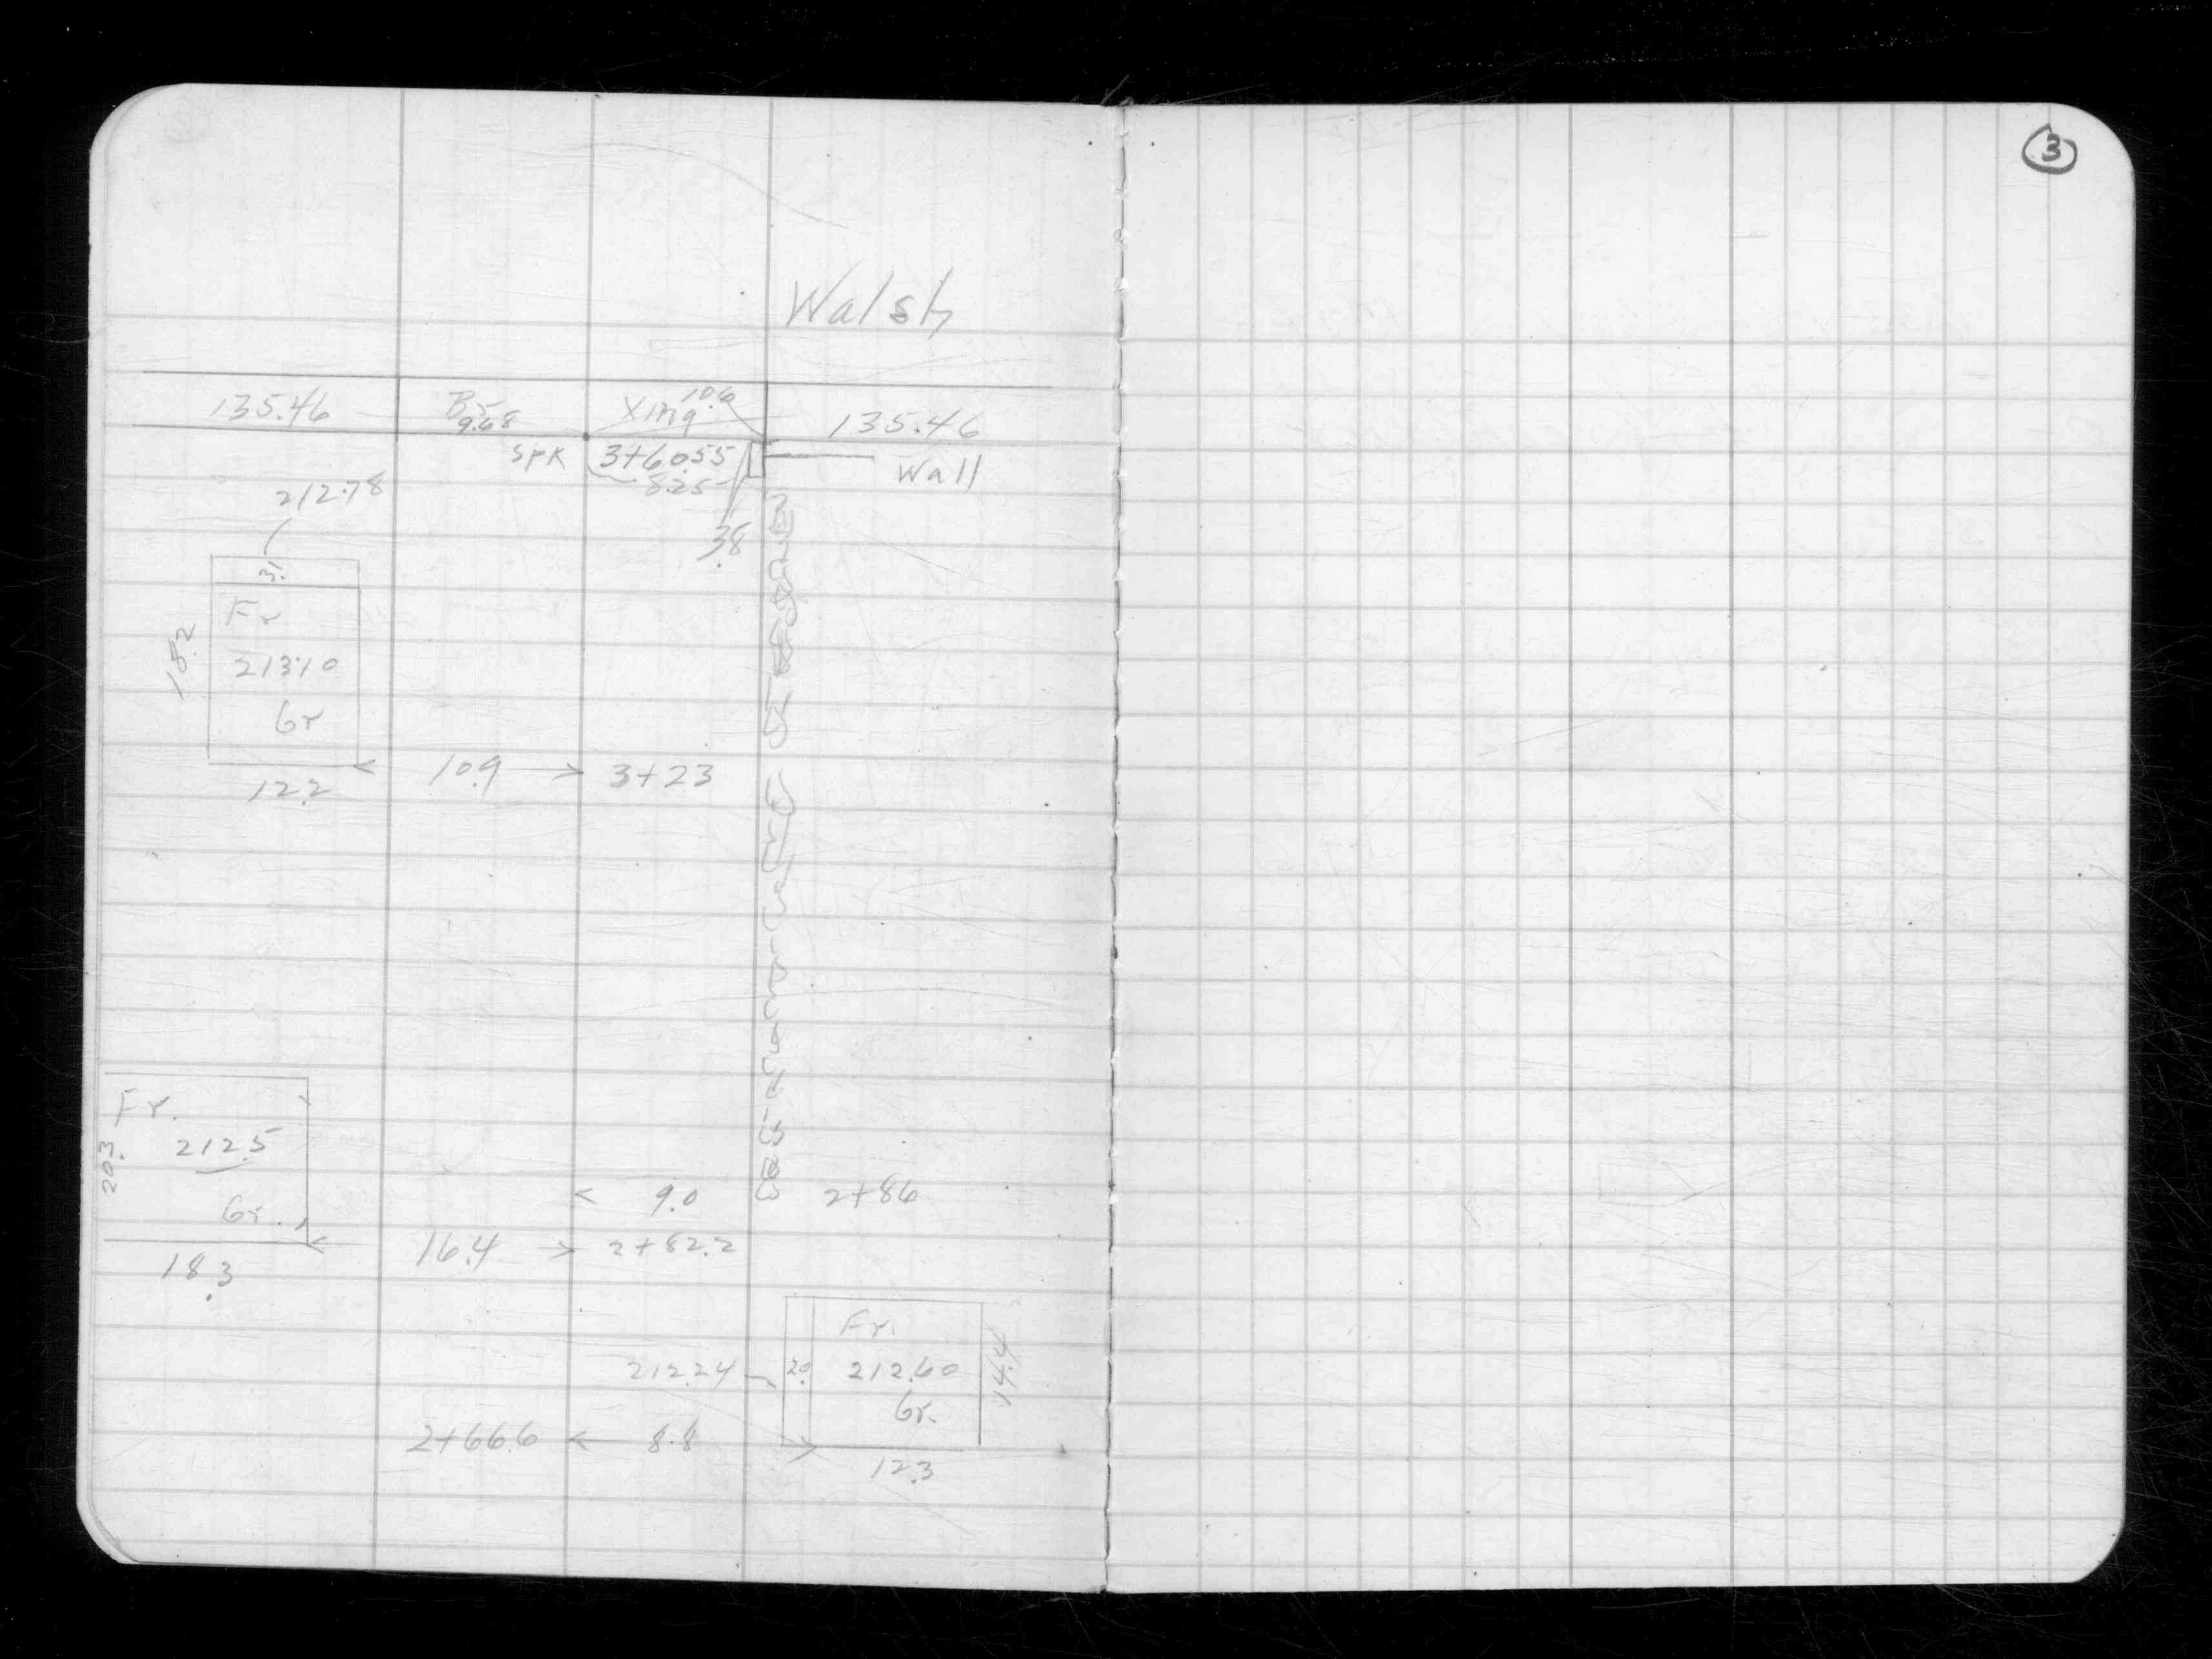 3
Walsh
135.46 B5 9.68 Xing 10.6 135.46
SPK 3+60.55 Wall
8.25
212.78
.38
3.
Fr
18.2
213.10
Gr
10.9 3+23
12.2
Fr.
212.5
20.3
9.0 2+86
Gr.
16.4 2+82.2
18.3
Fr.
212.24 2.0 212.60 14.4
Gr.
2+66.6 8.8
12.3